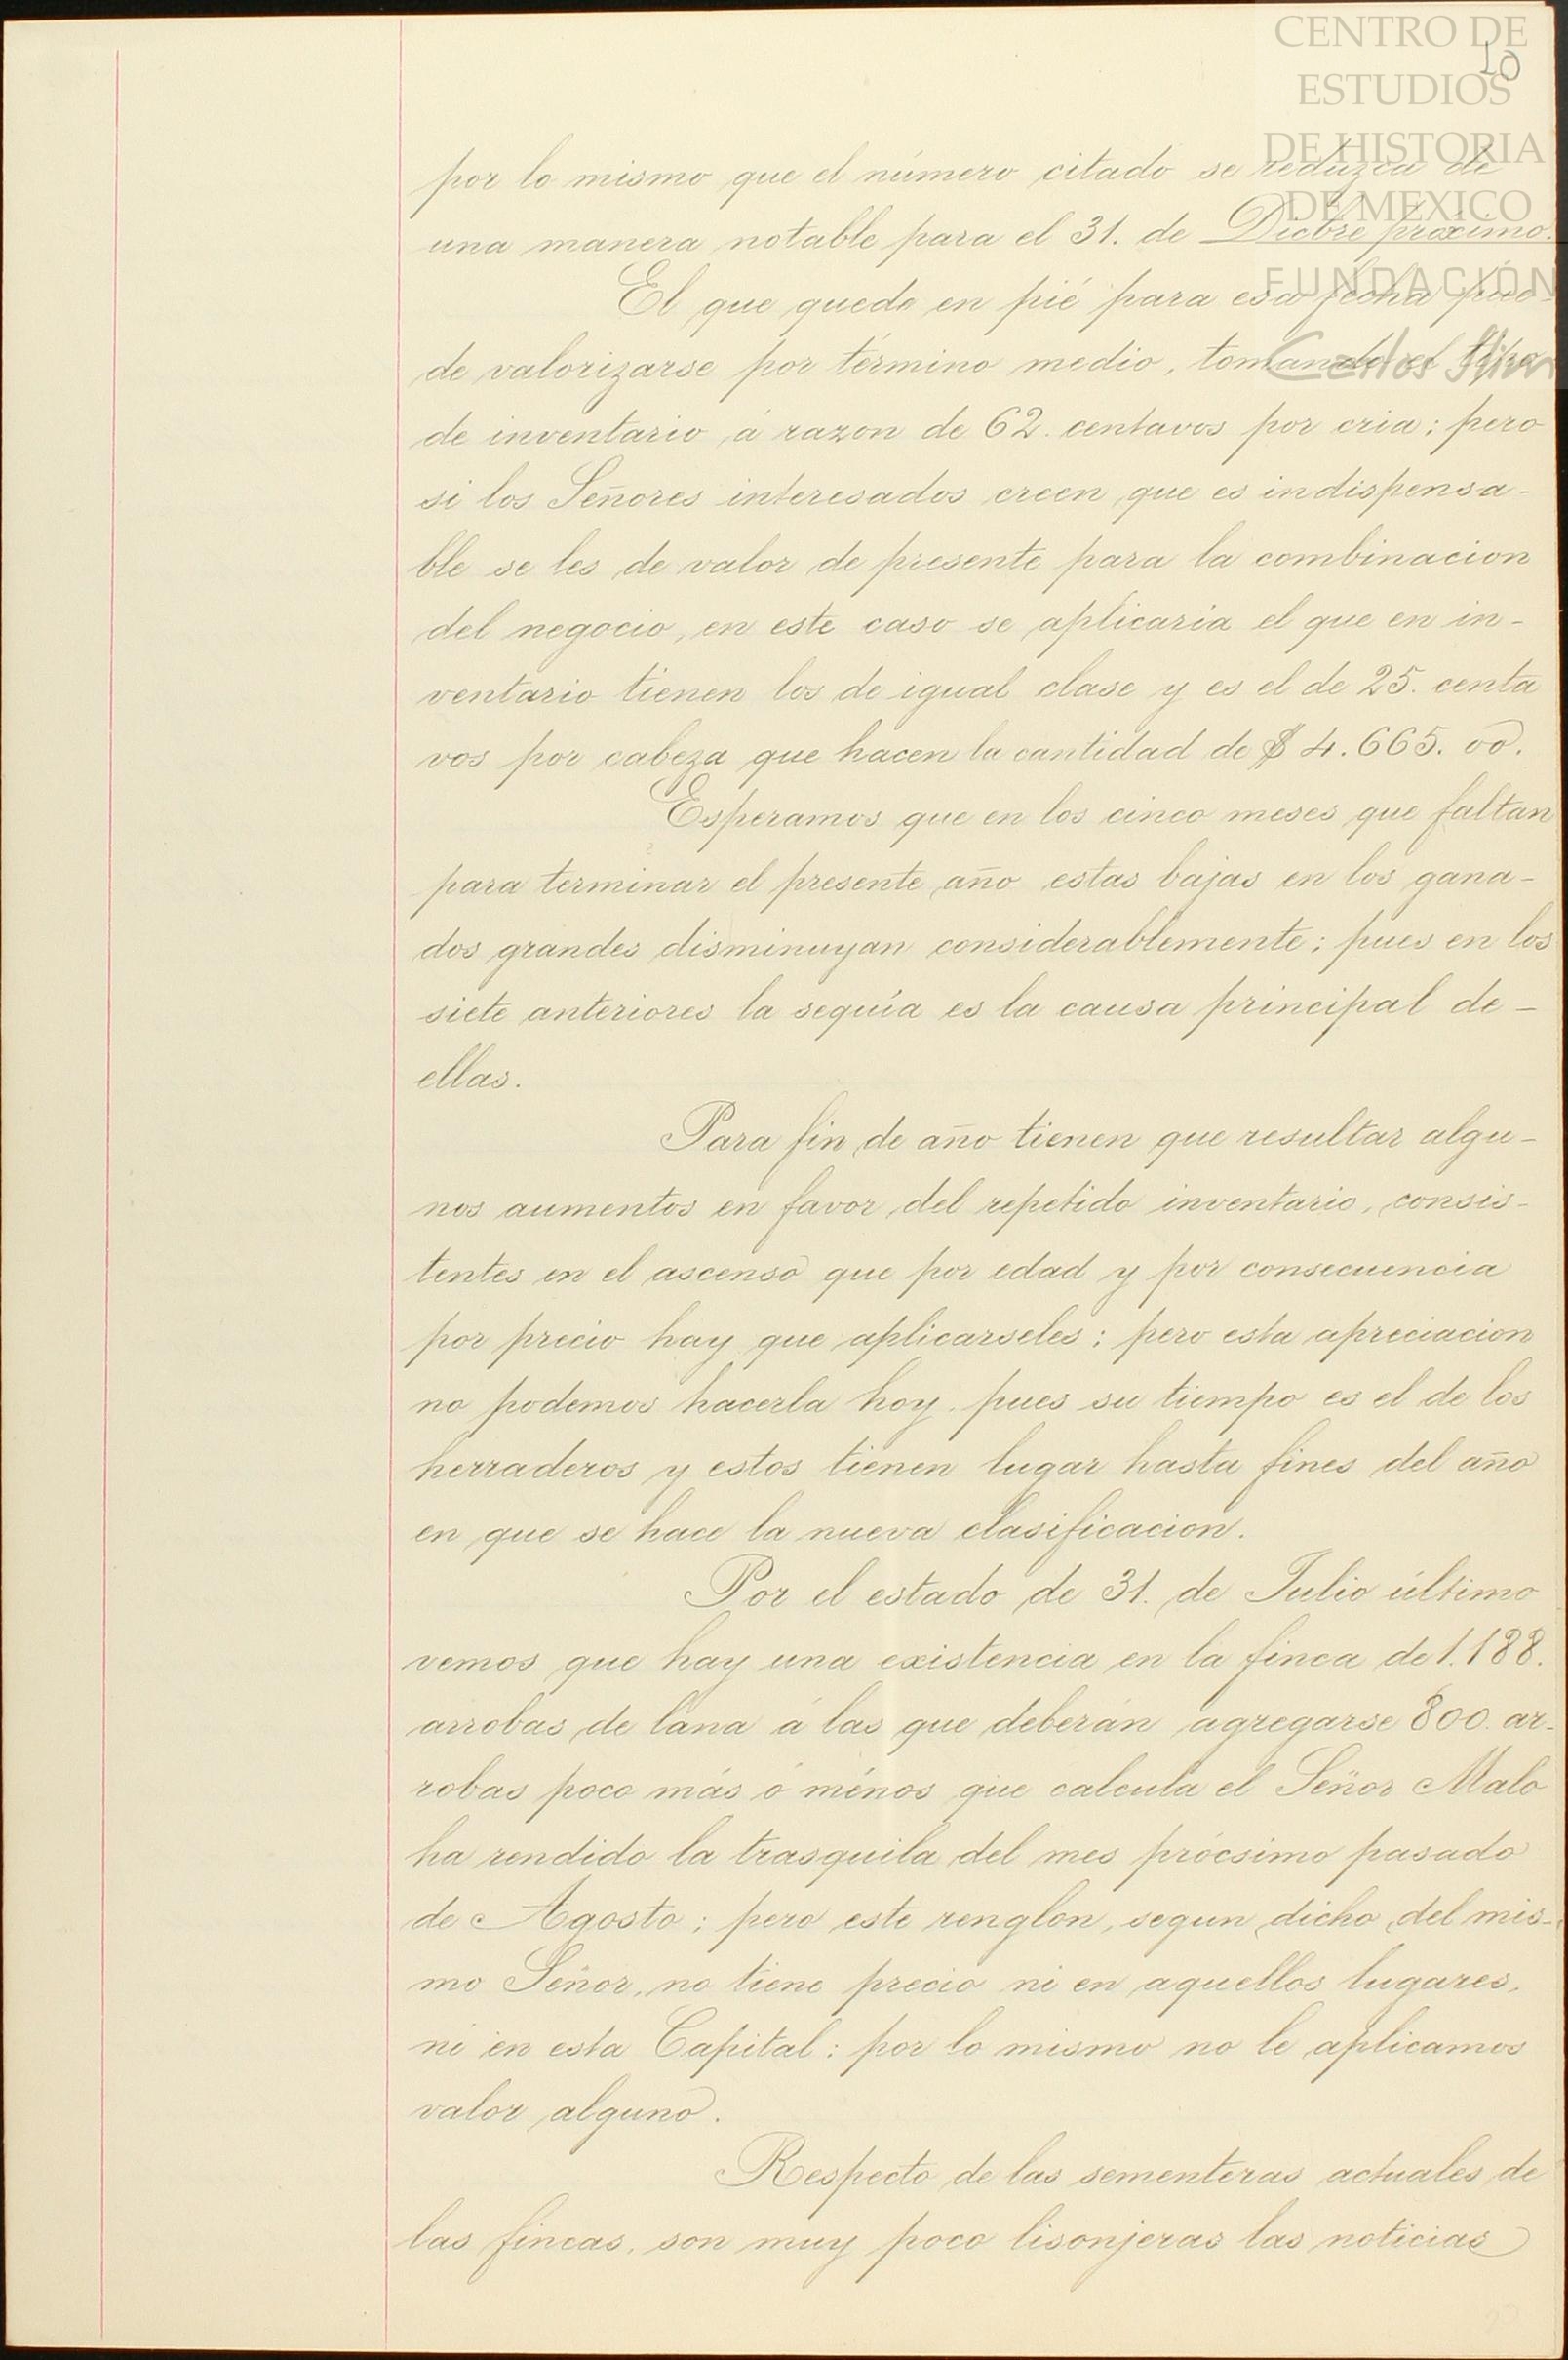 CENTRO DE
10
ESTUDIOS
DE HISTORIA
DE MEXICO
FUNDACIÓN
Carlos Slim
por lo mismo que el número citado se reduzca de
una manera notable para el 31. de Dicbre próximo.
El que quede en pié para esa fecha pue-
de valorizarse por término medio, tomando el tipo
de inventario á razon de 62. centavos por cria; pero
si los Señores interesados creen que es indispensa-
ble se les de valor de presente para la combinacion
del negocio, en este caso se aplicaría el que en in-
ventario tienen los de igual clase y es el de 25. centa
vos por cabeza que hacen la cantidad de $ 4.665.00.
Esperamos que en los cinco meses que faltan
para terminar el presente año estas bajas en los gana-
dos grandes disminuyan considerablemente; pues en los
siete anteriores la sequía es la causa principal de-
ellas.
Para fin de año tienen que resultar algu-
nos aumentos en favor del repetido inventario, consis-
tentes en el ascenso que por edad y por consecuencia
por precio hay que aplicarseles; pero esta apreciacion
no podemos hacerla hoy, pues su tiempo es el de los
herraderos y estos tienen lugar hasta fines del año
en que se hace la nueva clasificacion.
Por el estado de 31. de Julio último
vemos que hay una existencia en la finca de 1.188.
arrobas de lana á las que deberán agregarse 800. ar-
robas poco más ó ménos que calcula el Señor Malo
ha rendido la trasquila del mes prócsimo pasado
de Agosto; pero este renglon, segun dicho del mis-
mo Señor, no tiene precio ni en aquellos lugares,
ni en esta Capital: por lo mismo no le aplicamos
valor alguno.
Respecto de las sementeras actuales de
las fincas, son muy poco lisonjeras las noticias